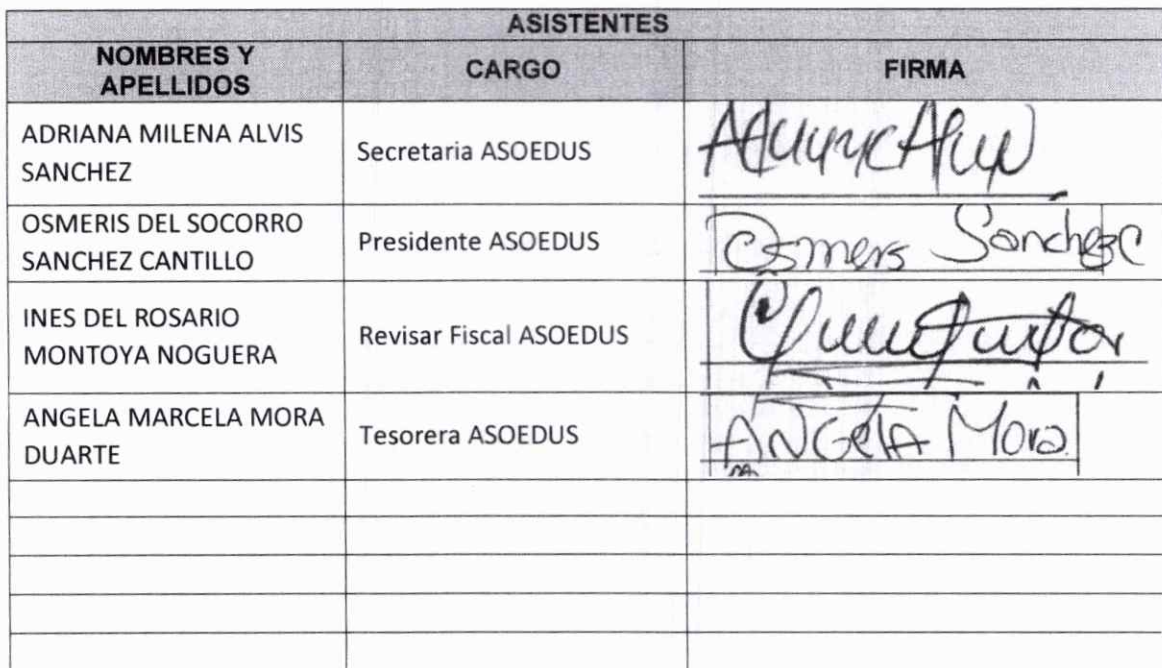 ASISTENTES
NOMBRES Y
APELLIDOS
CARGO
FIRMA
ADRIANA MILENA ALVIS
SANCHEZ
Secretaria ASOEDUS
OSMERIS DEL SOCORRO
SANCHEZ CANTILLO
Presidente ASOEDUS
Osmers Sanchez C
INES DEL ROSARIO
MONTOYA NOGUERA
Revisar Fiscal ASOEDUS
ANGELA MARCELA MORA
DUARTE
Tesorera ASOEDUS
ANGELA Mora